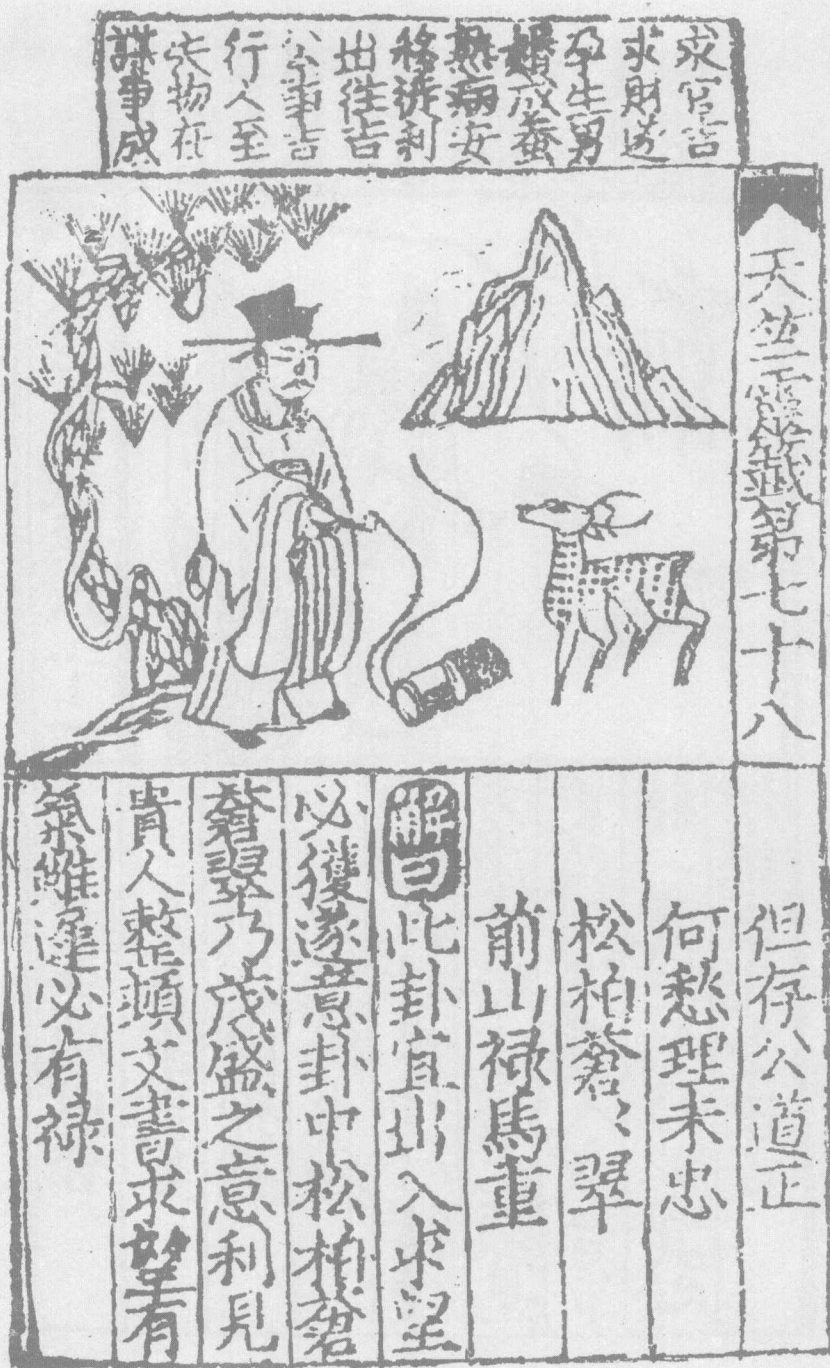 求官吉
求財遂
孕生男
婚成蚕
熟病安
移徙利
出往吉
公事吉
行人至
失物在
謀事成
天竺灵籤第七十八
但存公道正
何愁理未忠
松柏蒼〻翠
前山禄馬重
解曰此卦宜出入求望
必獲遂意卦中松柏蒼
蒼翠乃茂盛之意利見
貴人整頓文書求望有
氣雖遲必有禄